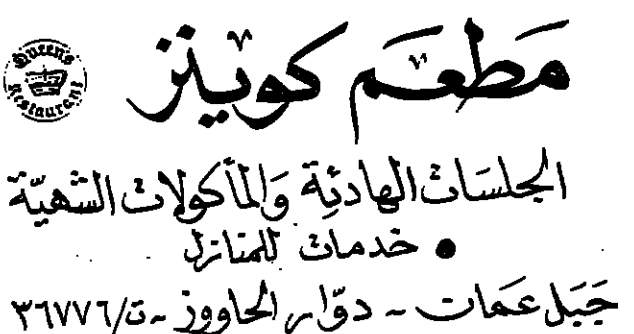 Queen's Restaurant
مطعم كوينز
الجلسات الهادئة والمأكولات الشهيّة
• خدمات للمنازل
جبل عمان - دوّار الحاووز - ت/٣٦٧٧٦